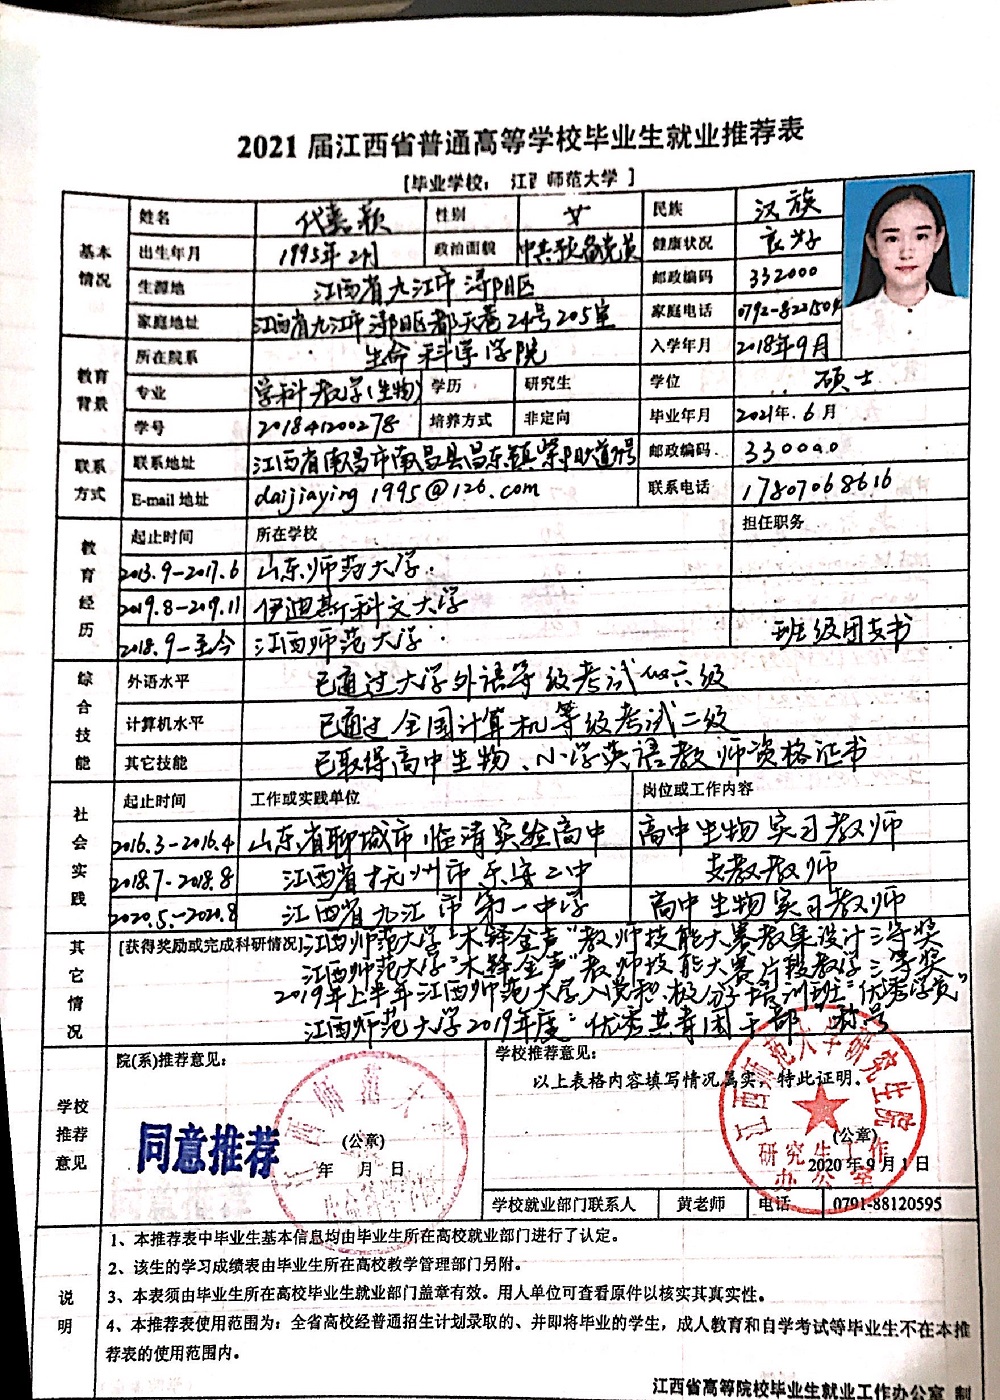 2021 届江西省普通高等学校毕业生就业推荐表
[毕业学校： 江西 师范大学 ]
基本情况
姓名 代嘉颖 性别 女 民族 汉族
出生年月 1995年2月 政治面貌 中共预备党员 健康状况 良好
生源地 江西省九江市浔阳区 邮政编码 332000
家庭地址 江西省九江市浔阳区都天巷24号205室 家庭电话 0792-8221504
教育背景
所在院系 生命科学学院 入学年月 2018年9月
专业 学科教学(生物) 学历 研究生 学位 硕士
学号 201841200278 培养方式 非定向 毕业年月 2021年.6月
联系方式
联系地址 江西省南昌市南昌县昌东镇紫阳大道 号 邮政编码 330000
E-mail 地址 daijiaying1995@126.com 联系电话 17807068616
教育经历
起止时间 所在学校 担任职务
2013.9-2017.6 山东师范大学
2019.8-2019.11 伊迪斯科文大学
2018.9-至今 江西师范大学 班级团支书
综合技能
外语水平 已通过大学外语等级考试 六级
计算机水平 已通过全国计算机等级考试二级
其它技能 已取得高中生物、小学英语教师资格证书
社会实践
起止时间 工作或实践单位 岗位或工作内容
2016.3-2016.4 山东省聊城市临清实验高中 高中生物实习教师
2018.7-2018.8 江西省抚州市乐安二中 支教教师
2020.5-2020.8 江西省九江市第一中学 高中生物实习教师
其它情况
[获得奖励或完成科研情况] 江西师范大学"木铎金声"教师技能大赛教案设计三等奖
江西师范大学"木铎金声"教师技能大赛片段教学三等奖
2019年上半年江西师范大学入党积极分子培训班"优秀学员"
江西师范大学2019年度"优秀共青团干部"称号
学校推荐意见
院(系)推荐意见：
同意推荐
(公章)
年 月 日
学校推荐意见：
以上表格内容填写情况属实，特此证明。
江西师范大学研究生院
研究生工作
办公室
(公章)
2020年9月1日
学校就业部门联系人 黄老师 电话 0791-88120595
说明
1、本推荐表中毕业生基本信息均由毕业生所在高校就业部门进行了认定。
2、该生的学习成绩表由毕业生所在高校教学管理部门另附。
3、本表须由毕业生所在高校毕业生就业部门盖章有效。用人单位可查看原件以核实其真实性。
4、本推荐表使用范围为：全省高校经普通招生计划录取的、并即将毕业的学生，成人教育和自学考试等毕业生不在本推
荐表的使用范围内。
江西省高等院校毕业生就业工作办公室 制